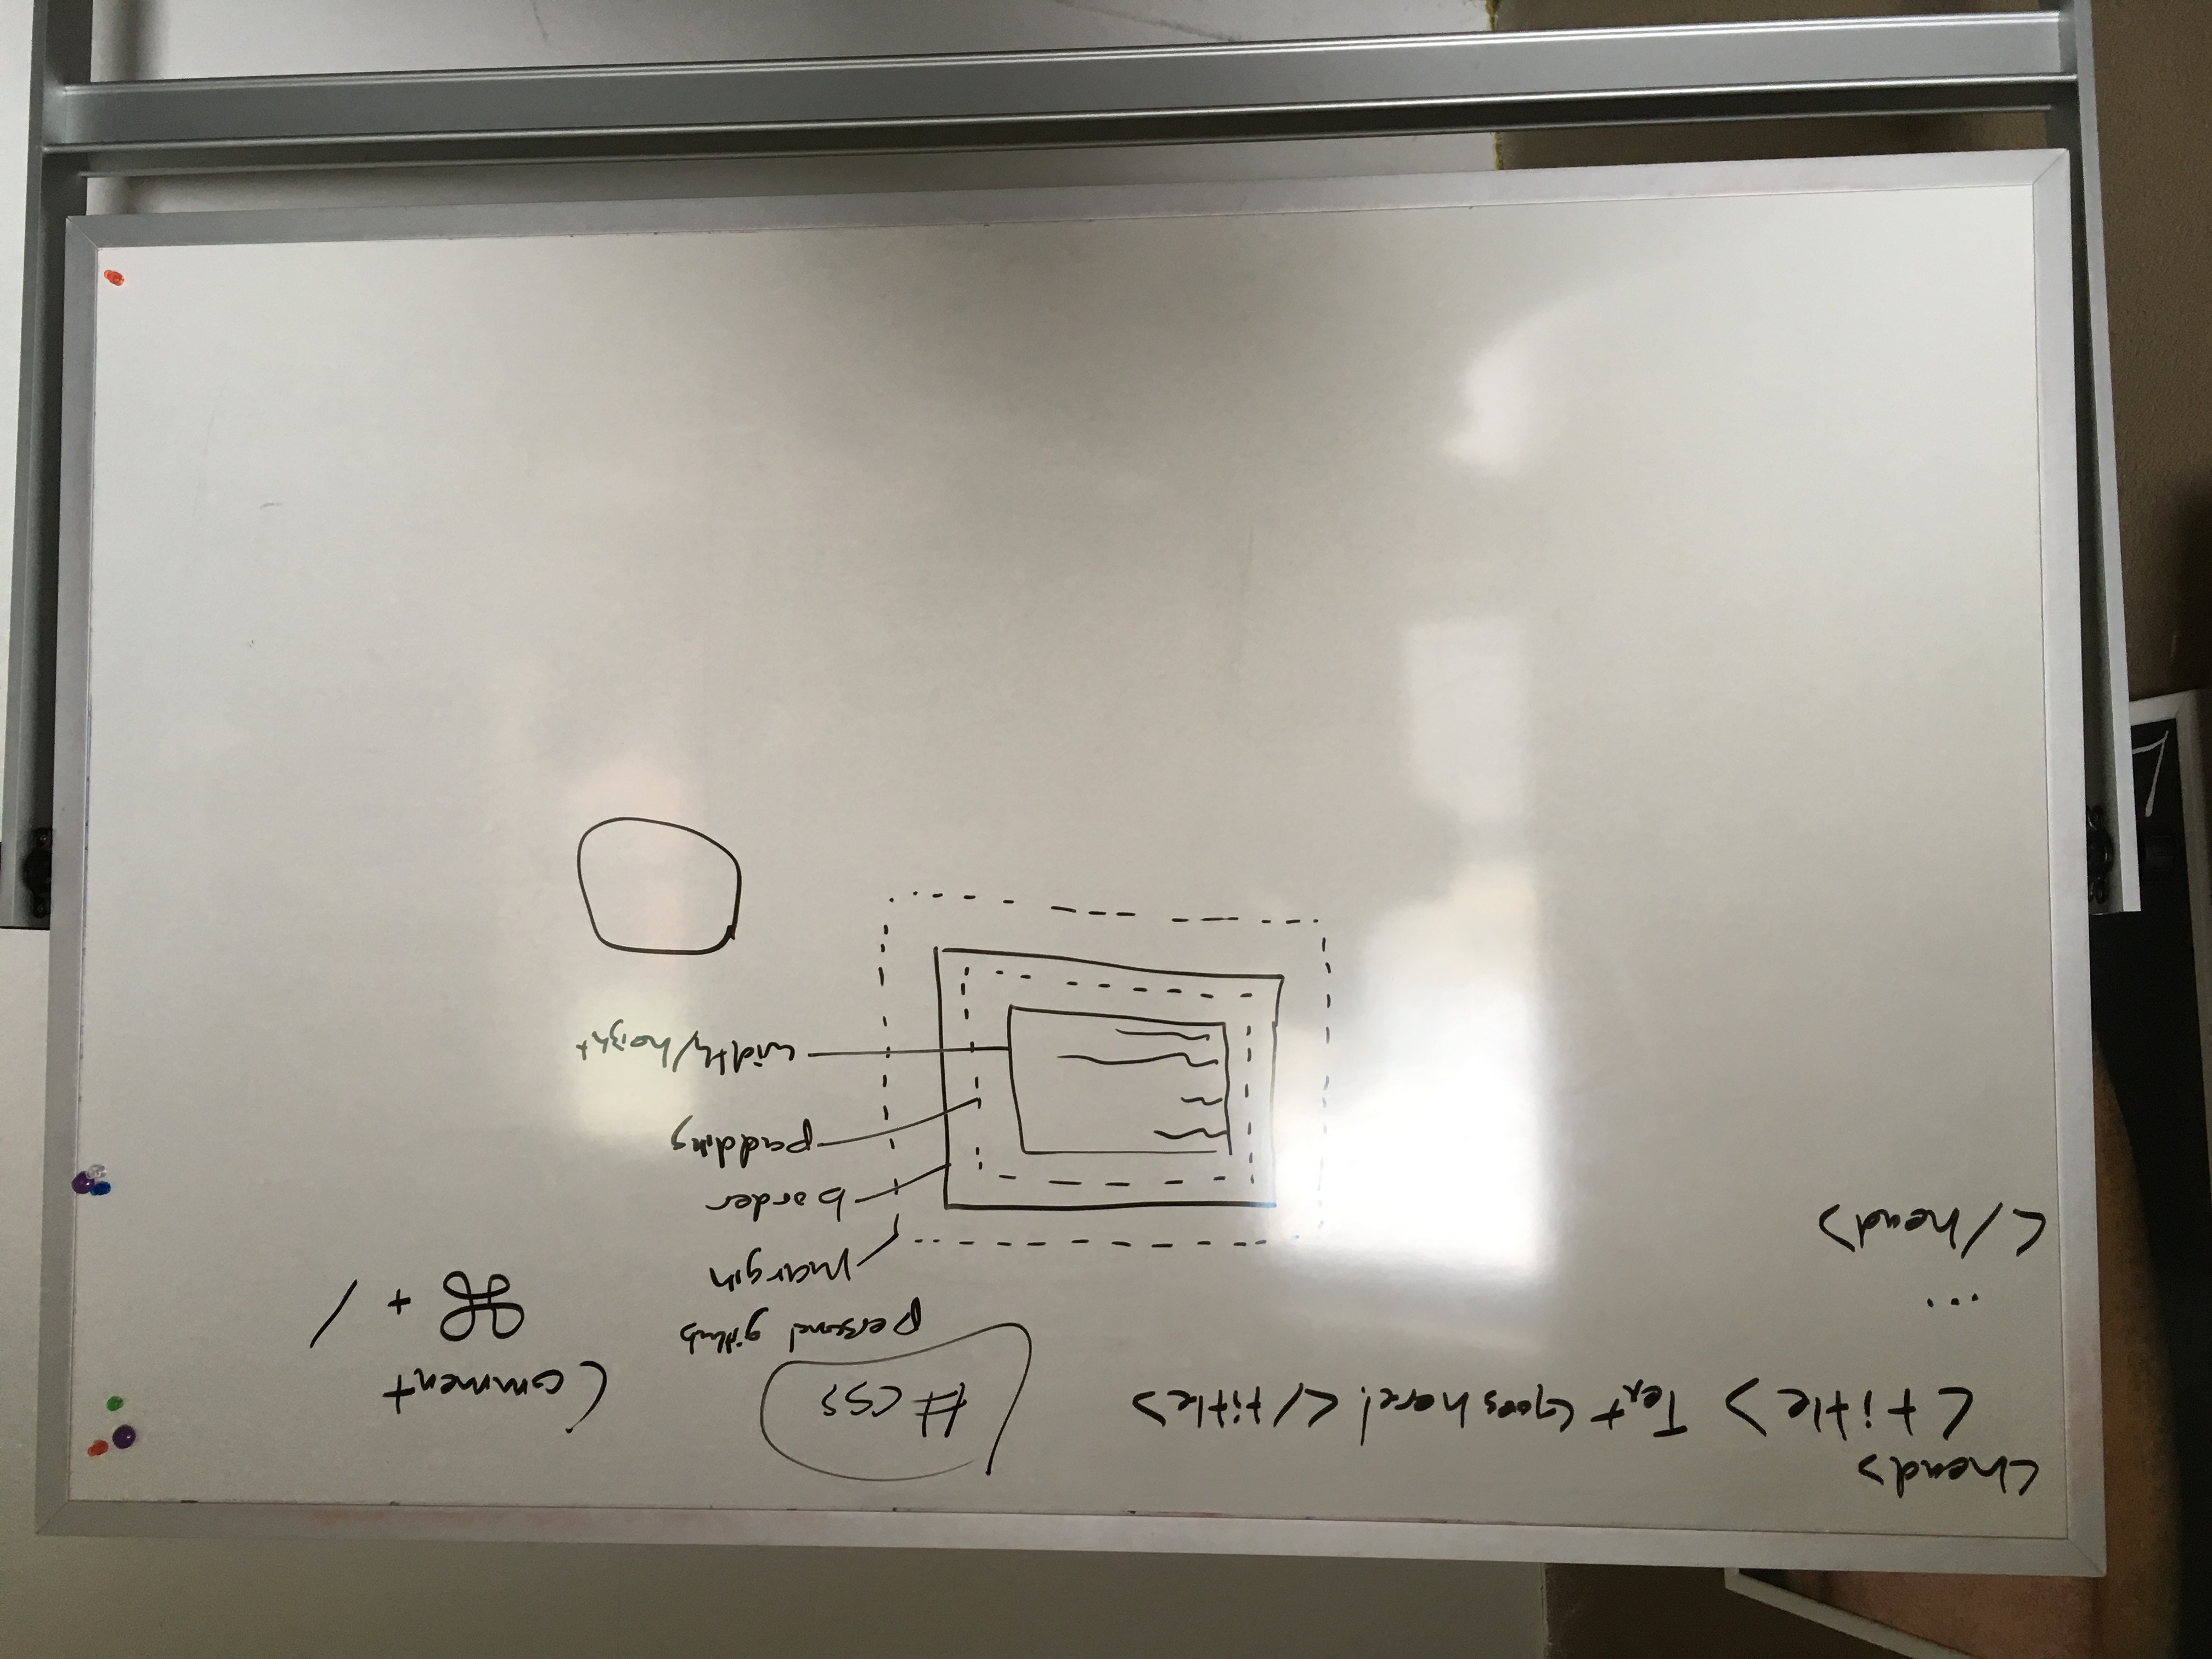 <head>
<title> Text Goes here! </title>
...
</head>
#css
personal github
Comment
⌘ + /
margin
border
padding
width/height